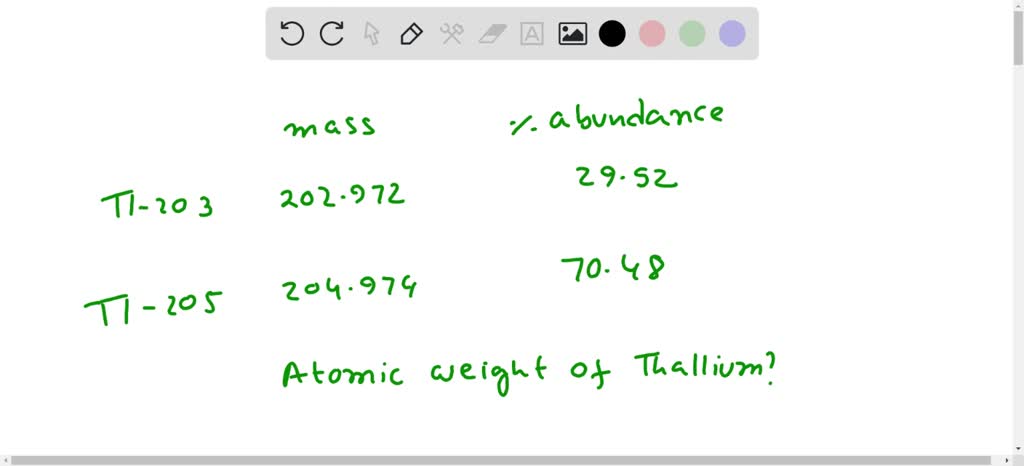 mass % abundance
Tl-203 202.972 29.52
Tl-205 204.974 70.48
Atomic weight of Thallium?